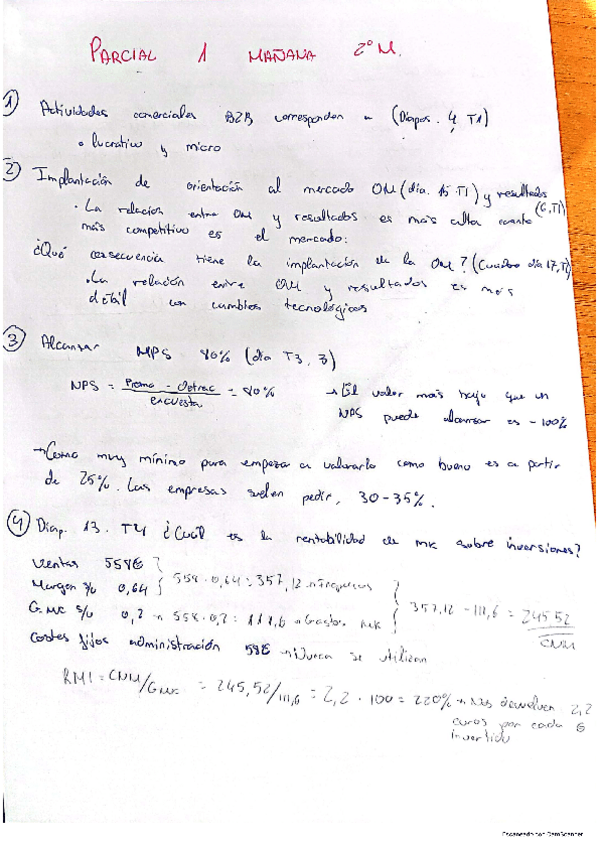 PARCIAL 1 MAÑANA 2º M.
1 Actividades comerciales B2B corresponden a (Diapos. 4 T1)
• lucrativo y micro
2 Implantación de orientación al mercado OM (dia. 15 T1) y resultados (6, T1)
• La relación entre OM y resultados es más alta cuanto
más competitivo es el mercado:
¿Qué consecuencia tiene la implantación de la OM? (Cuadro dia 17, T1)
• La relación entre OM y resultados es más
débil con cambios tecnológicos
3 Alcanzar NPS 80% (dia T3, 3)
NPS = Promo - Detrac / encuesta = 80% → El valor más bajo que un
NPS puede alcanzar es - 100%
→ Como muy mínimo para empezar a valorarlo como bueno es a partir
de 25%. Las empresas suelen pedir, 30-35%.
4 Diap. 13. T4 ¿Cuál es la rentabilidad de mk sobre inversiones?
Ventas 558€
Margen s/v 0,64 558 · 0,64 = 357,12 → Ingresos
G. MC s/v 0,2 → 558 · 0,2 = 111,6 → Gastos MK 357,12 - 111,6 = 245,52
CNM
Costes fijos administración 58€ → Nunca se utilizan
RMI = CNM/GMC = 245,52/111,6 = 2,2 · 100 = 220% → Nos devuelven 2,2
euros por cada €
invertido
Escaneado con CamScanner